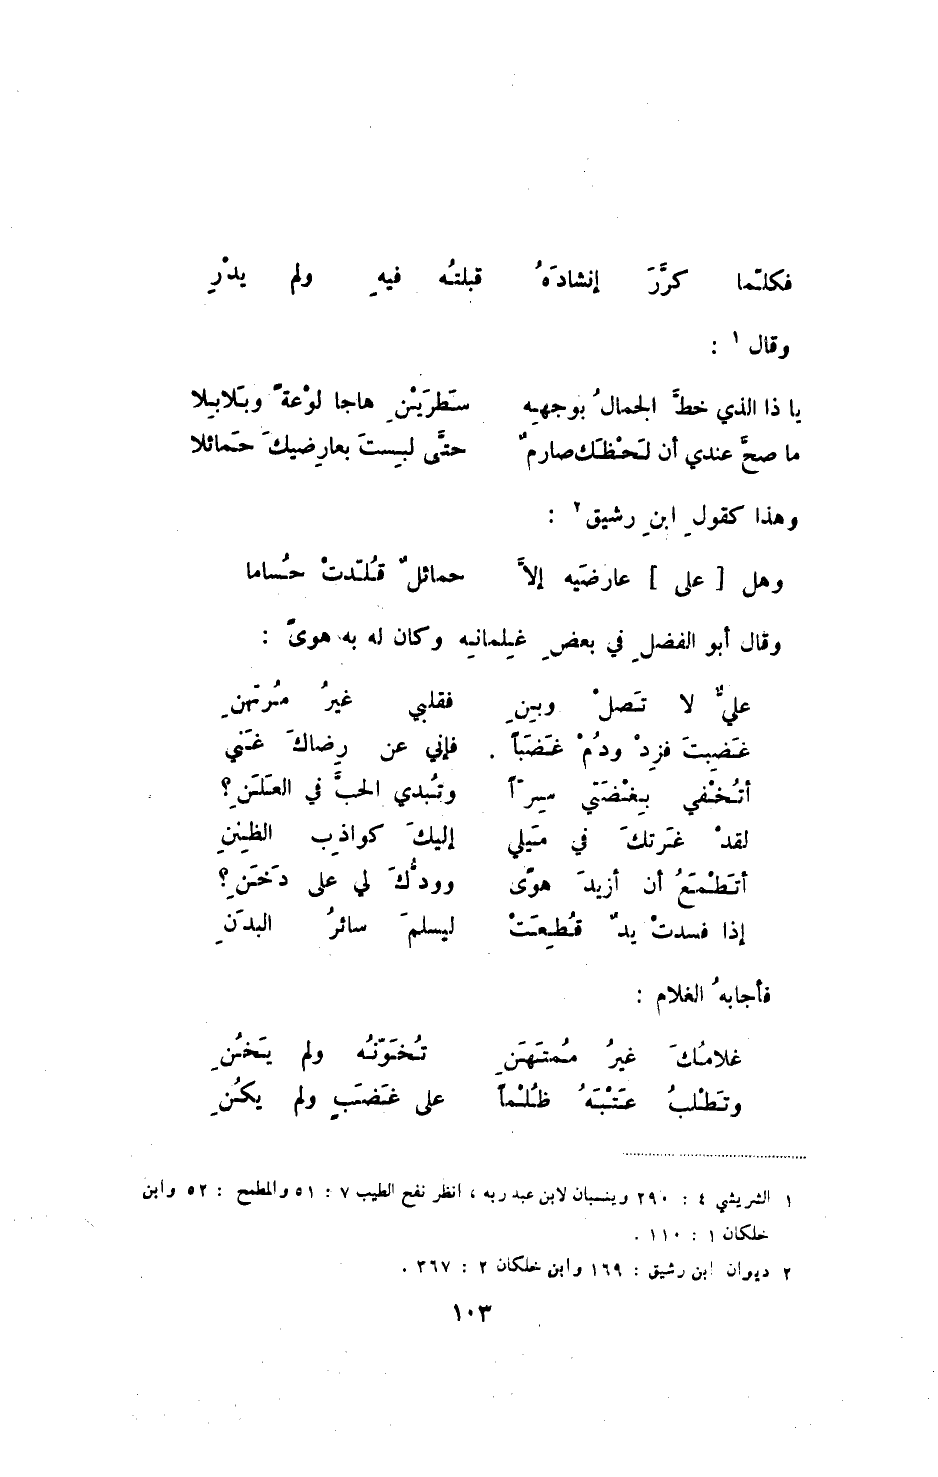 فكلّما كرَّرَ إنشادَهُ قبلتُه فيهِ ولم يدْرِ
وقال ١ :
يا ذا الذي خطَّ الجمالُ بوجهِه سَطرَيْنِ هاجا لوْعةً وبَلابِلا
ما صحَّ عندي أن لَحْظَك صارمٌ حتَّى لبِستَ بعارِضيكَ حَمائلا
وهذا كقولِ ابنِ رشيق ٢ :
وهل [ على ] عارضَيه إلاَّ حمائلٌ قُلّدتْ حُساما
وقال أبو الفضلِ في بعضِ غِيلمانِه وكان له به هوىً :
عليٌّ لا تَصلْ وبِينِ فقلبي غيرُ مُرتَهنِ
غَضِبتَ فزِدْ ودُمْ غَضَباً . فإني عن رِضاكَ غَني
أتُخْفي بِغْضَتي سِرّاً وتُبدي الحبَّ في العَلَنِ ؟
لقدْ غَرّتكَ في مَيلي إليكَ كواذِب الظِّنِنِ
أتَطْمَعُ أن أزيدَ هوًى وودُّكَ لي على دَخَنِ ؟
إذا فسدتْ يدٌ قُطِعَتْ ليسلمَ سائرُ البدَنِ
فأجابهُ الغلام :
غلامُكَ غيرُ مُمتَهَنِ تُخَوّنُه ولم يَخُنِ
وتَطْلبُ عَتْبَهُ ظُلْماً على غَضَبٍ ولم يكُنِ
١ الشريشي ٤ : ٢٩٠ وينسبان لابن عبد ربه ، انظر نفح الطيب ٧ : ٥١ والمطمح : ٥٢ وابن
خلكان ١ : ١١٠ .
٢ ديوان ابن رشيق : ١٦٩ وابن خلكان ٢ : ٣٦٧ .
١٠٣